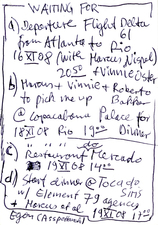 WAITING FOR
a) Departure Flight Delta
61
from Atlanta to Rio
16 XI 08 (with Marcus Nigel)
20 50 + Vinnie
b) Marcus + Vinnie + Roberto
to pick me up
@ Copacabana Palace for
18 XI 08 Rio 19 00 Dinner
c) " " do
Restaurant Mercado
19 XI 08 14 30
d) Start dinner @ Tocado
w/ Element 79 agency
+ Marcus et al 19 XI 08 17 00